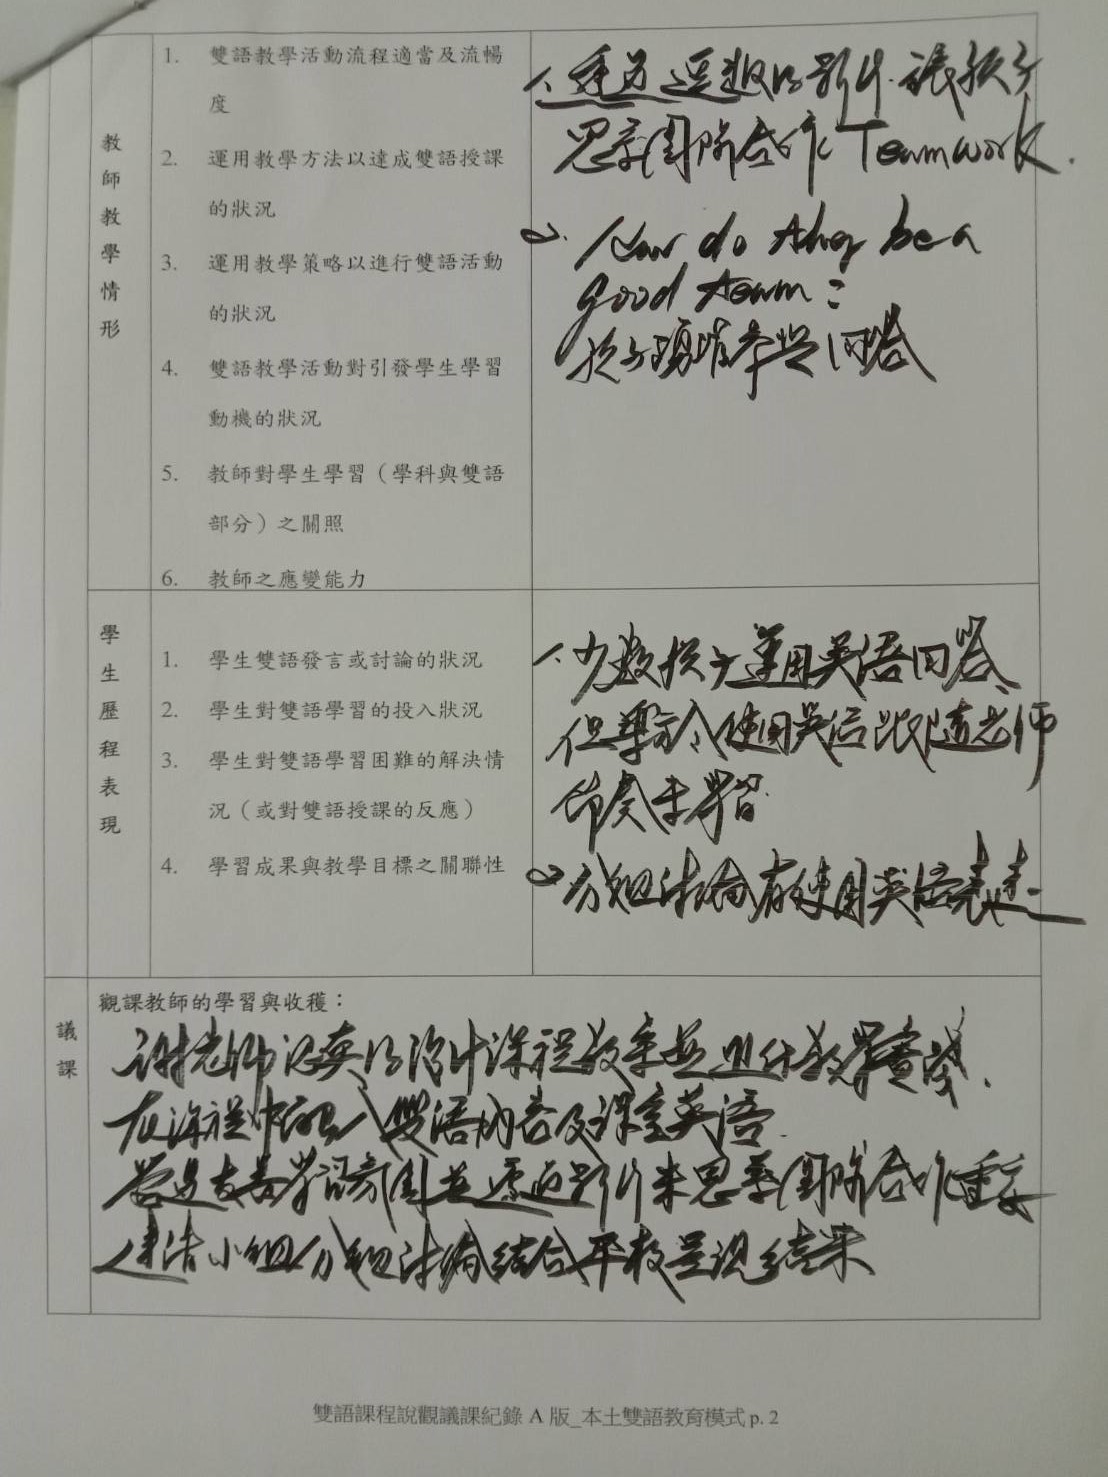 教師教學情形
1. 雙語教學活動流程適當及流暢
度
2. 運用教學方法以達成雙語授課
的狀況
3. 運用教學策略以進行雙語活動
的狀況
4. 雙語教學活動對引發學生學習
動機的狀況
5. 教師對學生學習（學科與雙語
部分）之關照
6. 教師之應變能力
影片
思考團隊合作 Teamwork.
2. How do they be a
good team:
孩子踴躍舉手回答
學生歷程表現
1. 學生雙語發言或討論的狀況
2. 學生對雙語學習的投入狀況
3. 學生對雙語學習困難的解決情
況（或對雙語授課的反應）
4. 學習成果與教學目標之關聯性
1. 少數孩子運用英語回答
但 使用英語 老師
節奏來學習
2. 分組討論有使用英語表達
議課
觀課教師的學習與收穫：
謝老師 設計課程教案並
在課程中 入雙語內容及課室英語
學習氛圍並 影片來思考團隊合作重要
小組分組討論結合平板呈現結果
雙語課程說觀議課紀錄 A 版_本土雙語教育模式 p. 2